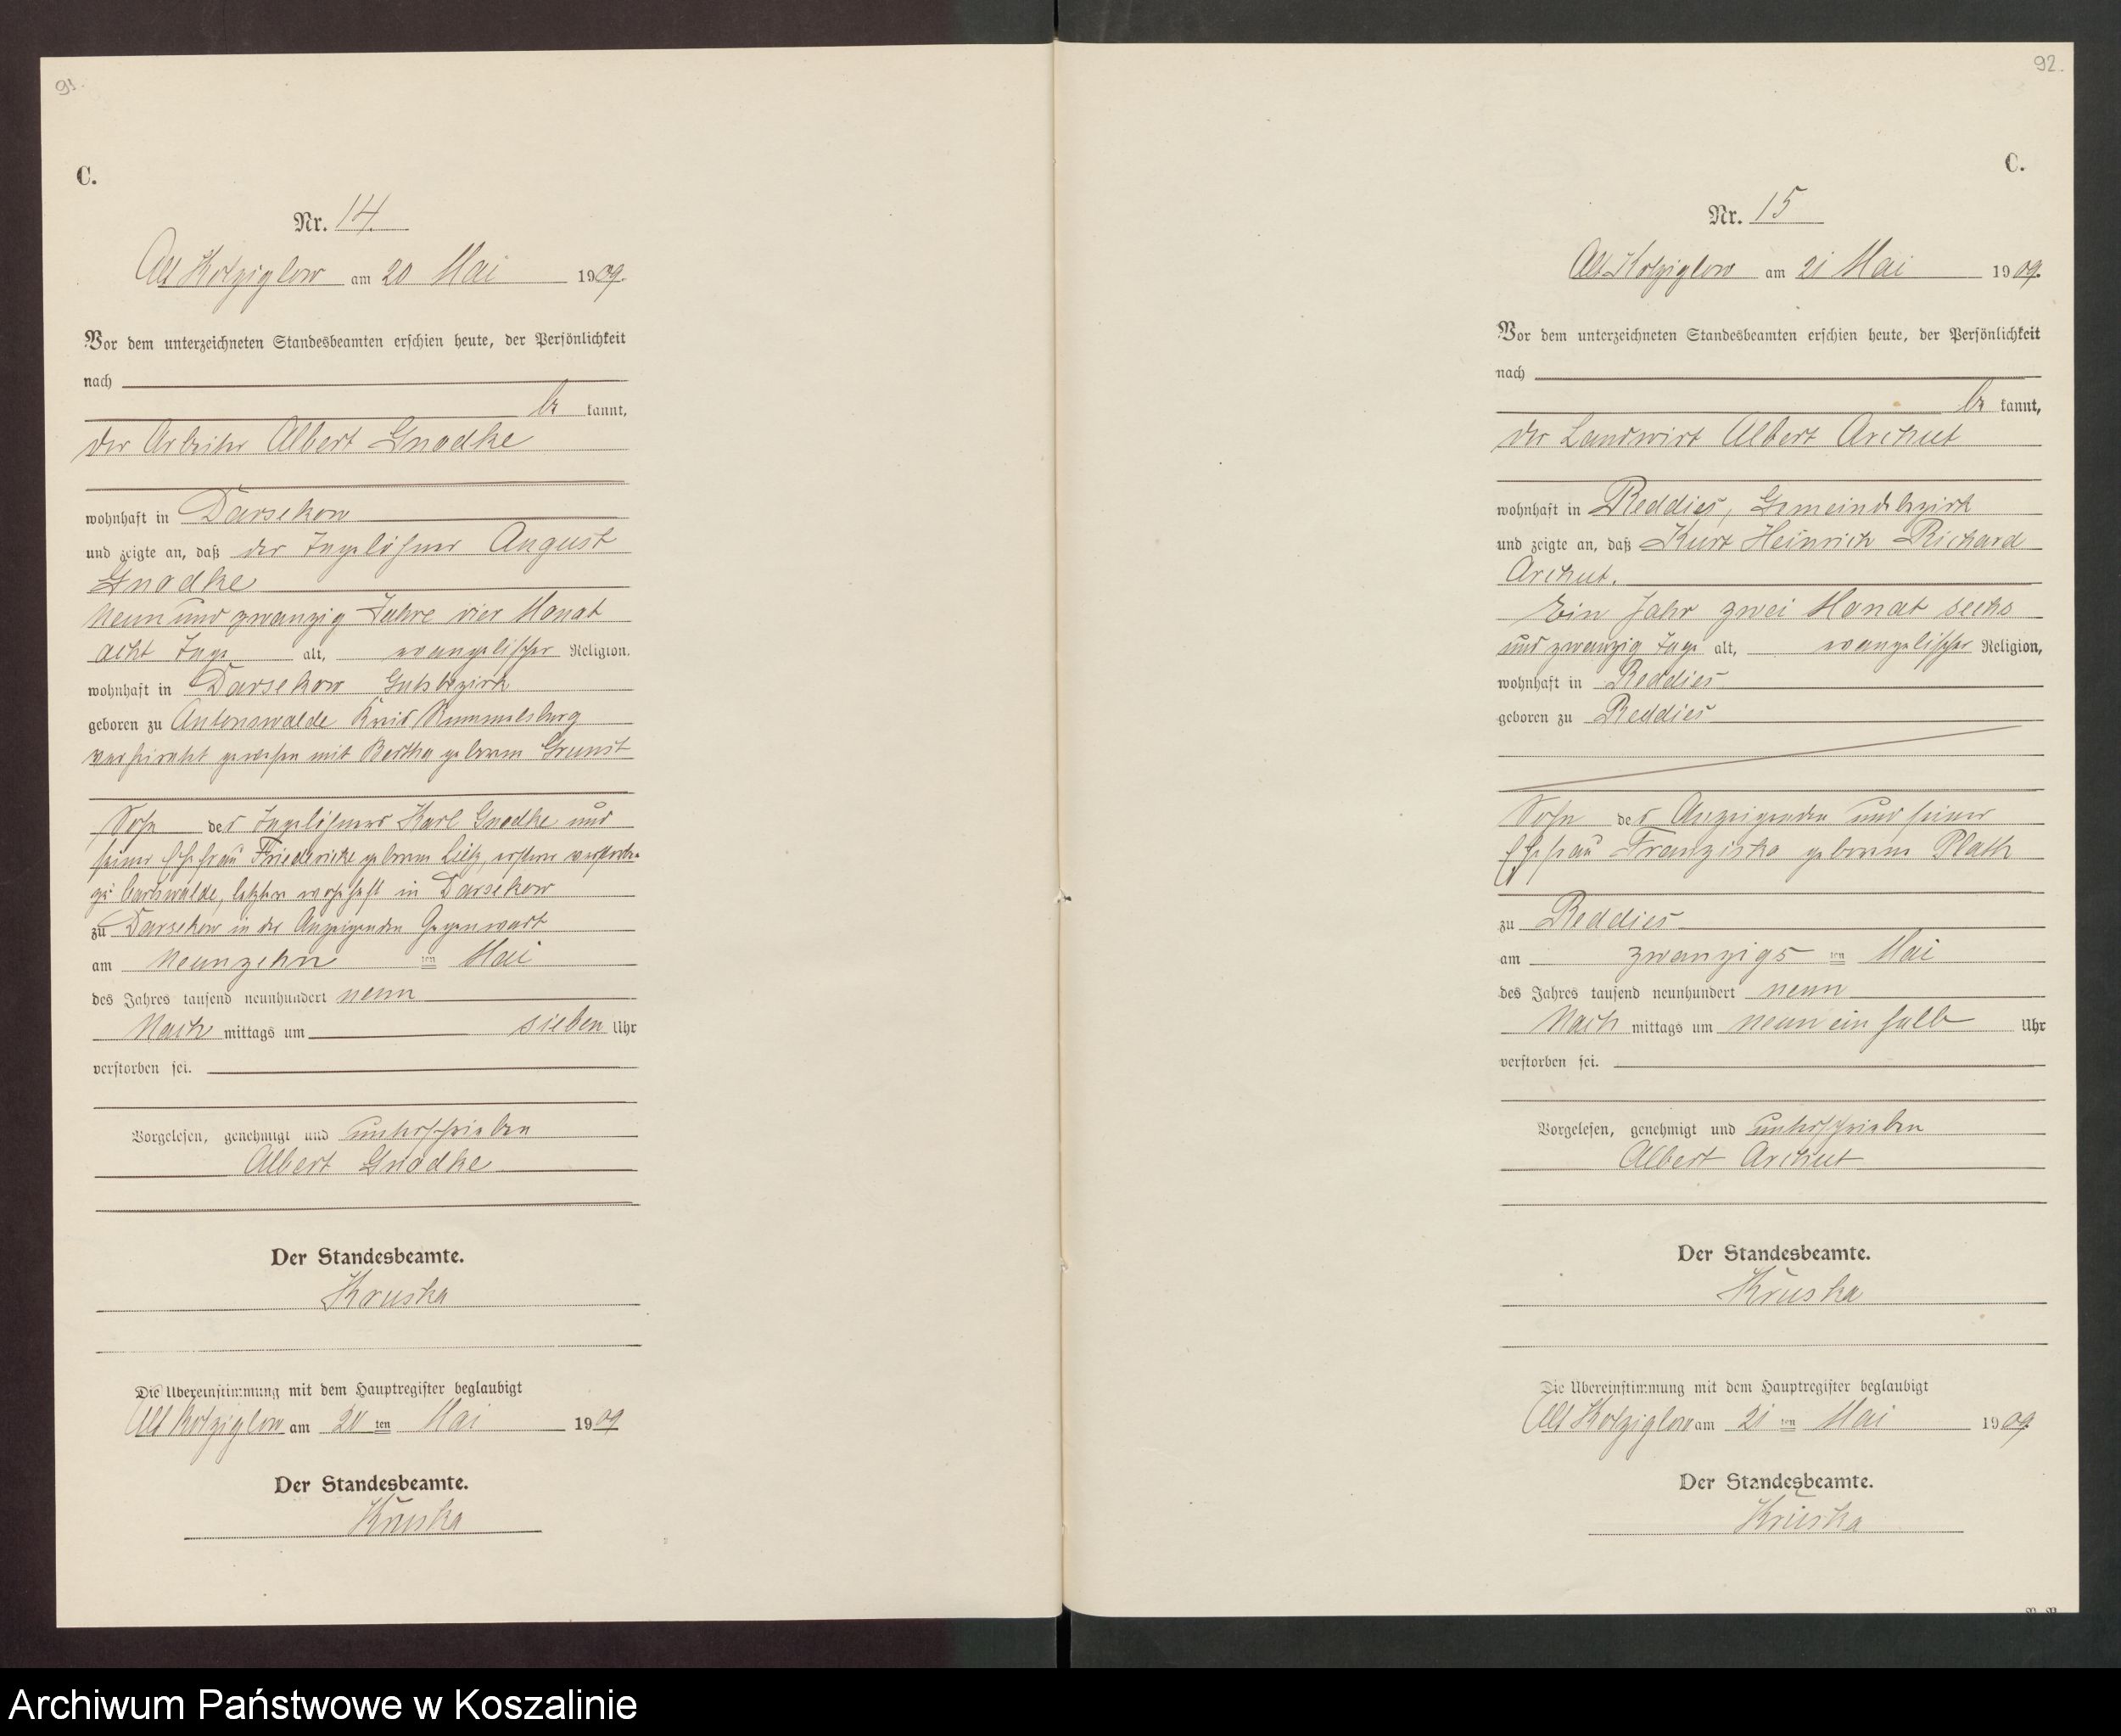 91.
C.
Nr. 14.
Alt Kolziglow am 20 Mai 1909.
Vor dem unterzeichneten Standesbeamten erschien heute, der Persönlichkeit
nach
be kannt,
der Arbeiter Albert Gnodke
wohnhaft in Darsekow
und zeigte an, daß der Tagelöhner August
Gnodke
neunundzwanzig Jahre vier Monat
acht Tage alt, evangelischer Religion.
wohnhaft in Darsekow Gutsbezirk
geboren zu Antonswalde Kreis Rummelsburg
verheiratet gewesen mit Bertha geborene Grunst
Sohn des Tagelöhners Karl Gnodke und
seiner Ehefrau Friedericke geborene Lietz, ersterer verstorben
zu letztere wohnhaft in Darsekow
zu Darsekow in des Anzeigenden Gegenwart
am neunzehn ten Mai
des Jahres tausend neunhundert neun
Nach mittags um sieben Uhr
verstorben sei.
Vorgelesen, genehmigt und unterschrieben
Albert Gnodke
Der Standesbeamte.
Kruska
Die Übereinstimmung mit dem Hauptregister beglaubigt
Alt Kolziglow am 20 ten Mai 1909
Der Standesbeamte.
Kruska
92.
C.
Nr. 15
Alt Kolziglow am 21 Mai 1909.
Vor dem unterzeichneten Standesbeamten erschien heute, der Persönlichkeit
nach
be kannt,
der Landwirt Albert Archut
wohnhaft in Reddies, Gemeindebezirk
und zeigte an, daß Kurt Heinrich Richard
Archut.
Ein Jahr zwei Monat sechs
und zwanzig Tage alt, evangelischer Religion,
wohnhaft in Reddies
geboren zu Reddies
Sohn des Anzeigenden und seiner
Ehefrau Franziska geborene Plath
zu Reddies
am zwanzigs ten Mai
des Jahres tausend neunhundert neun
Nach mittags um neun ein halb Uhr
verstorben sei.
Vorgelesen, genehmigt und unterschrieben
Albert Archut
Der Standesbeamte.
Kruska
Die Übereinstimmung mit dem Hauptregister beglaubigt
Alt Kolziglow am 21 ten Mai 1909.
Der Standesbeamte.
Kruska
Archiwum Państwowe w Koszalinie